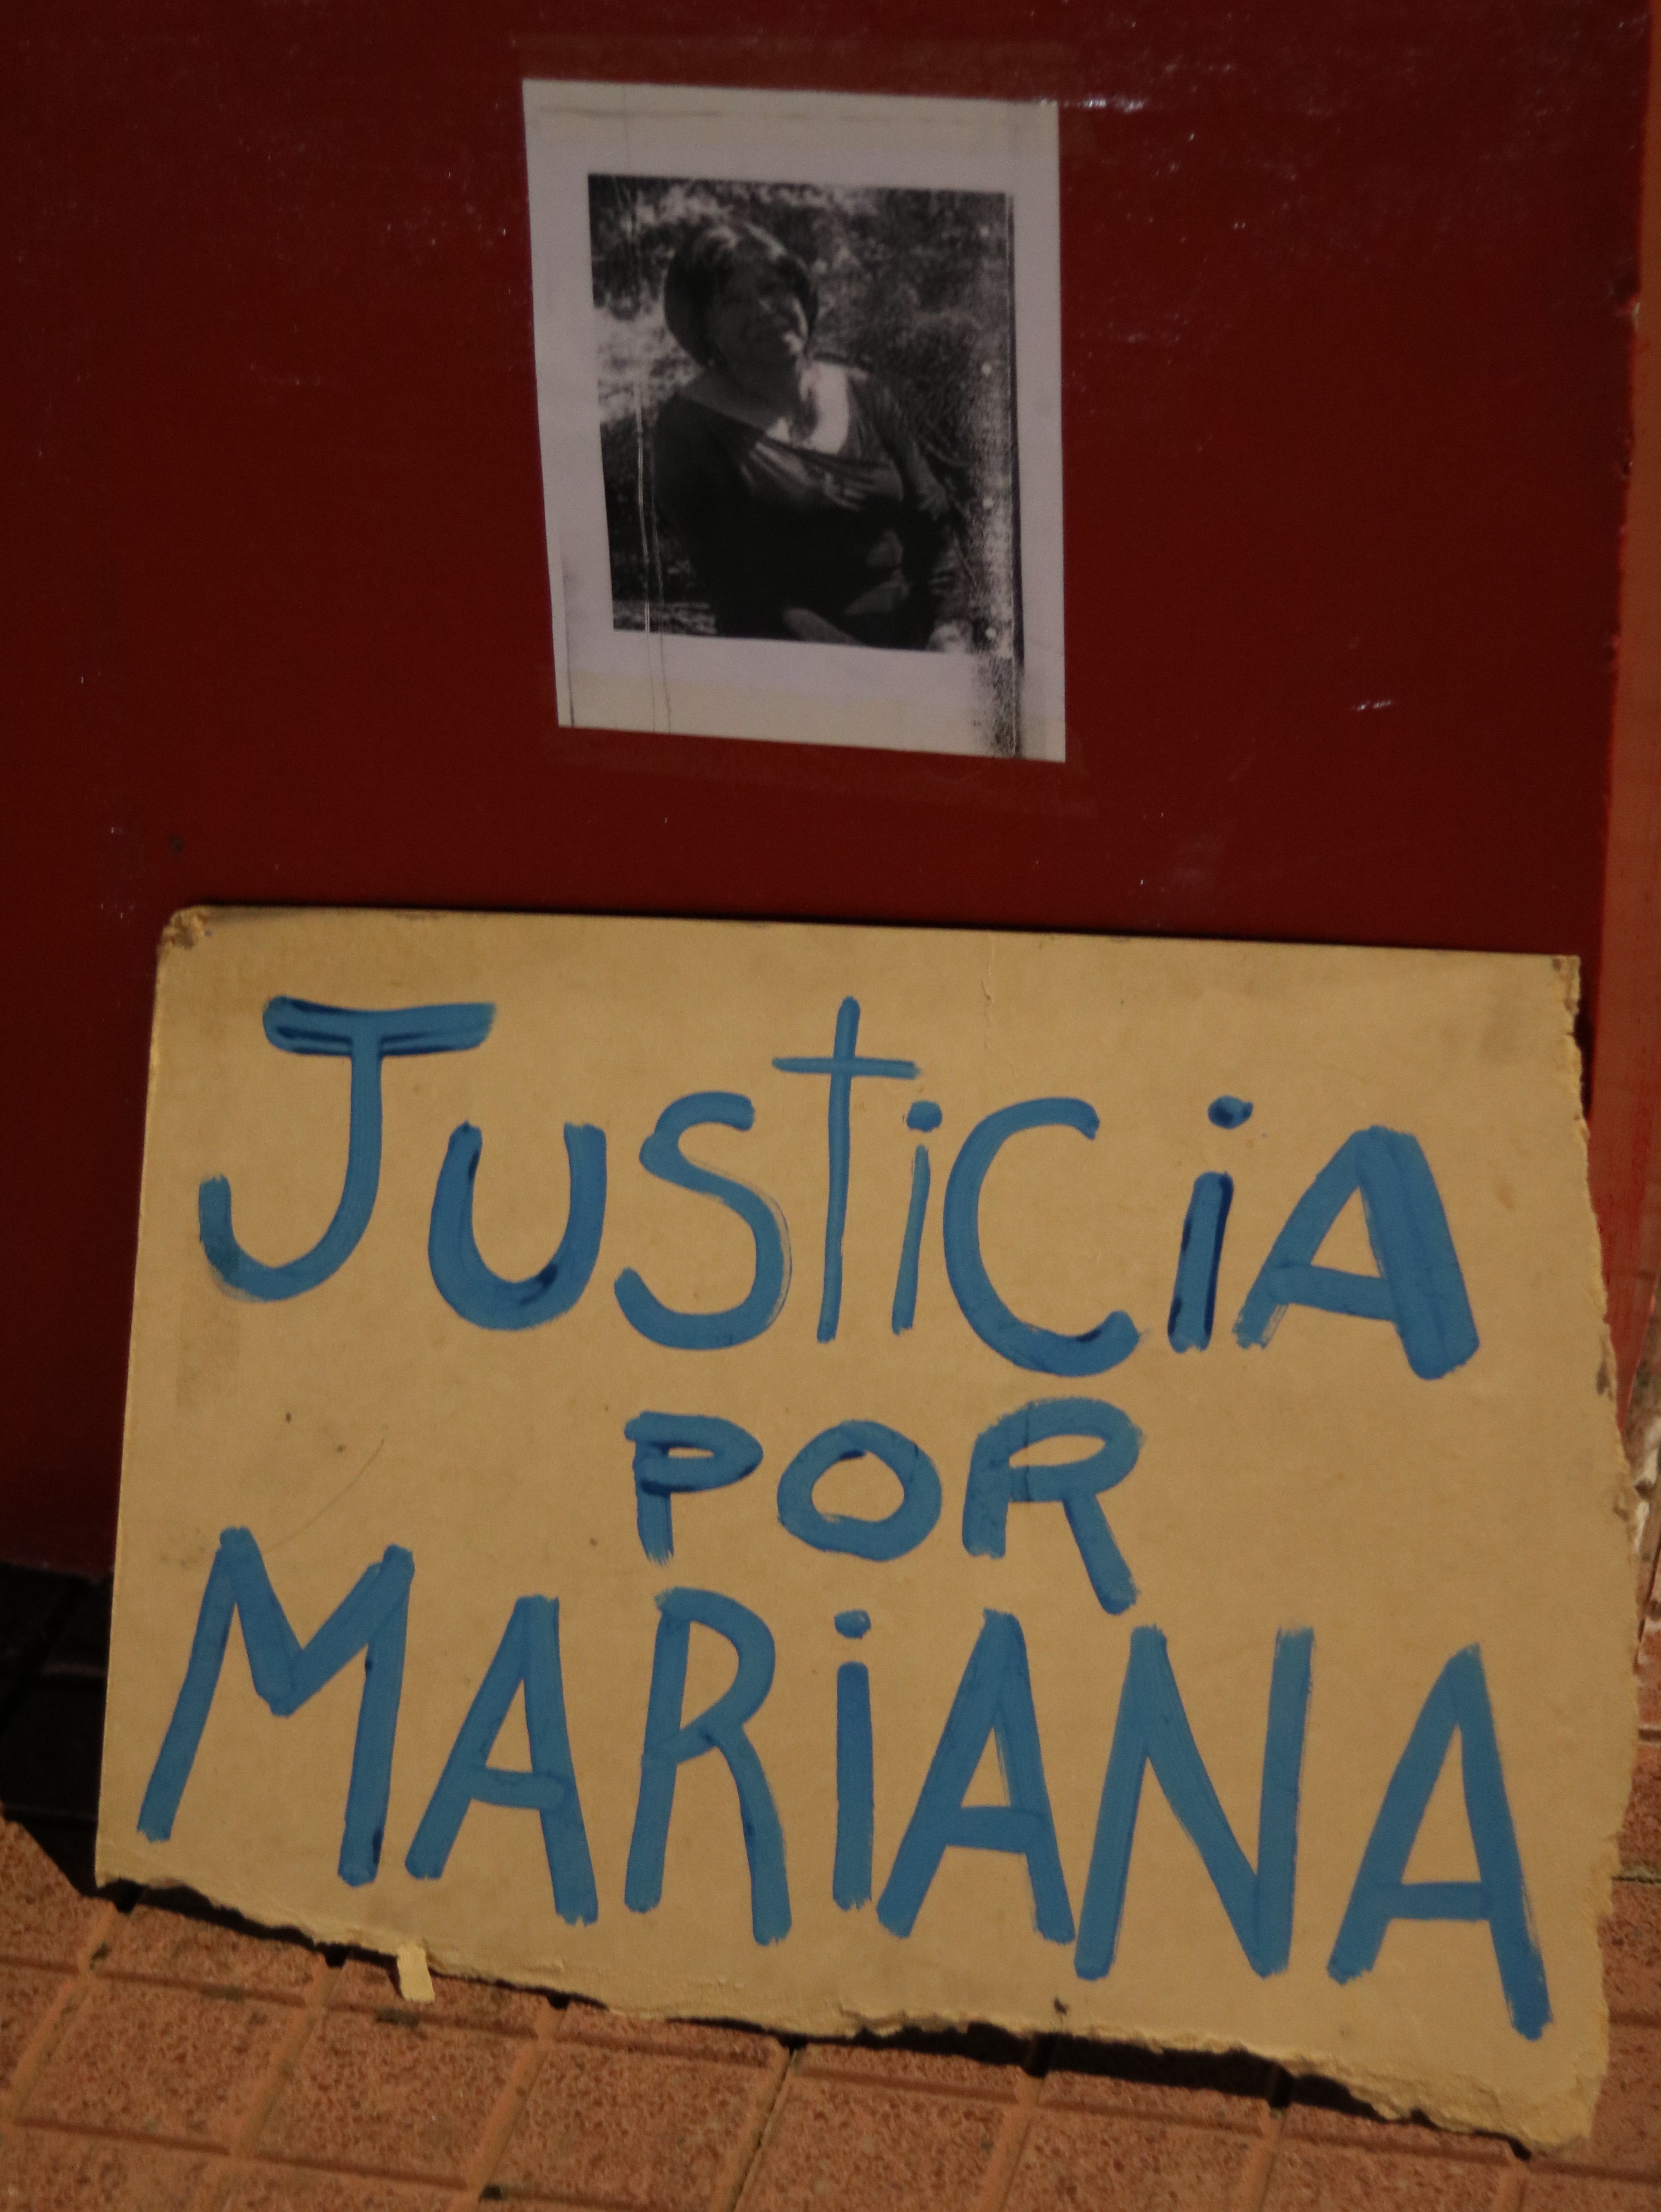 JUSTiCiA
POR
MARiANA